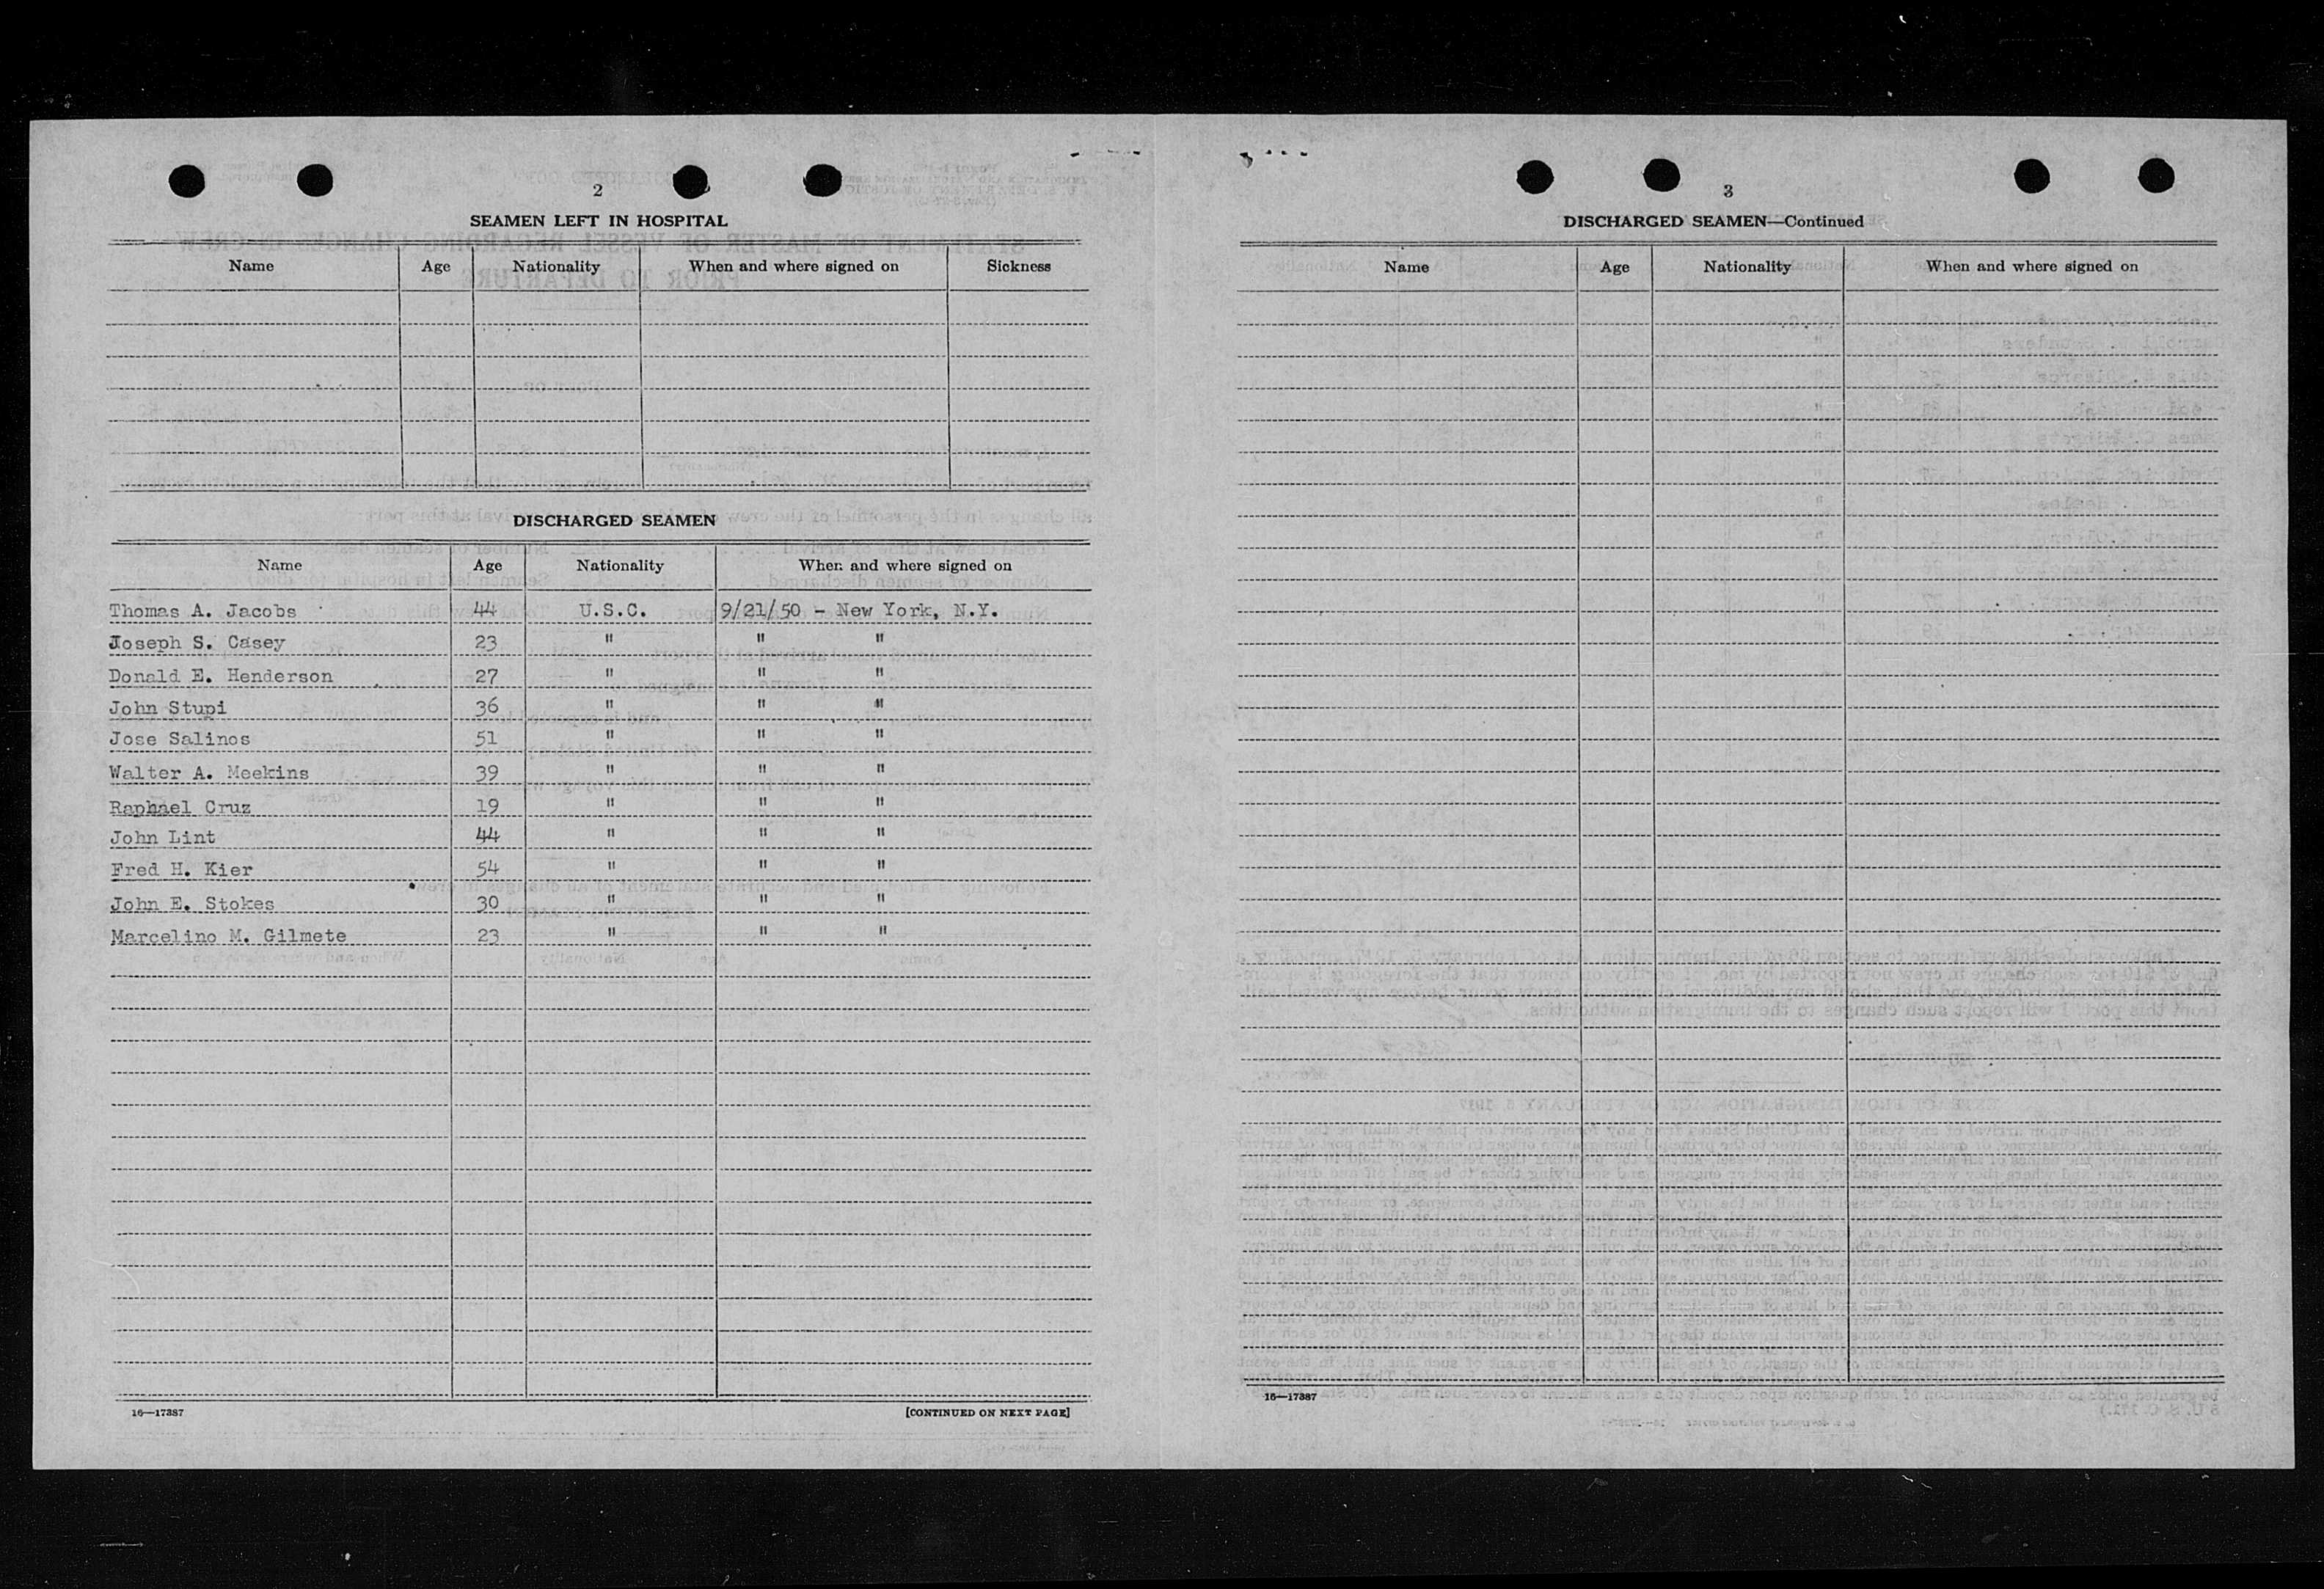 2
SEAMEN LEFT IN HOSPITAL
Name Age Nationality When and where signed on Sickness
DISCHARGED SEAMEN
Name Age Nationality When and where signed on
Thomas A. Jacobs 44 U.S.C. 9/21/50 - New York, N.Y.
Joseph S. Casey 23 " " "
Donald E. Henderson 27 " " "
John Stupi 36 " " "
Jose Salinos 51 " " "
Walter A. Meekins 39 " " "
Raphael Cruz 19 " " "
John Lint 44 " " "
Fred H. Kier 54 " " "
John E. Stokes 30 " " "
Marcelino M. Gilmete 23 " " "
16—17387 [CONTINUED ON NEXT PAGE]
3
DISCHARGED SEAMEN—Continued
Name Age Nationality When and where signed on
16—17387